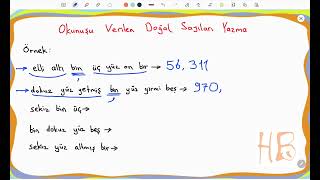 Okunuşu Verilen Doğal Sayıları Yazma
Örnek:
→ elli altı bin üç yüz on bir → 56,311
→ dokuz yüz yetmiş bin yüz yirmi beş → 970,
sekiz bin üç →
bin dokuz yüz beş →
sekiz yüz altmış bir →
HB